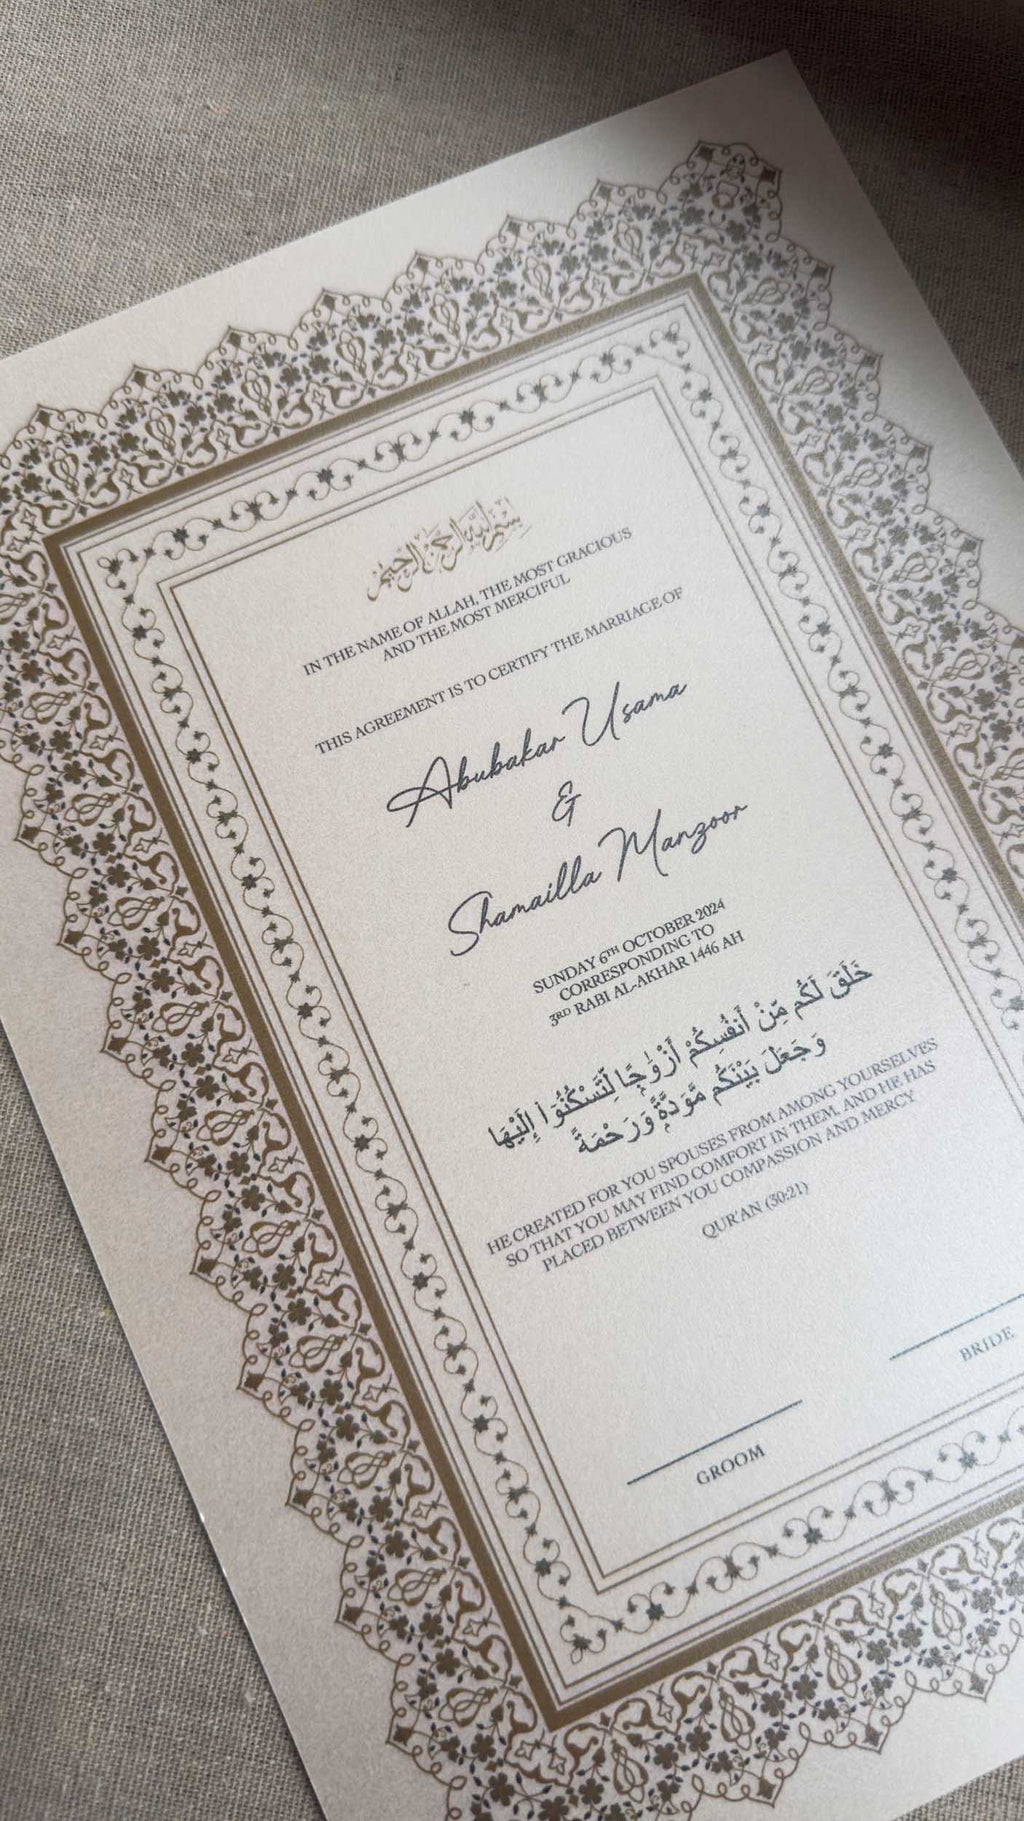 بسم الله الرحمن الرحيم
IN THE NAME OF ALLAH, THE MOST GRACIOUS
AND THE MOST MERCIFUL
THIS AGREEMENT IS TO CERTIFY THE MARRIAGE OF
Abubakar Usama
&
Shamailla Manzoor
SUNDAY 6TH OCTOBER 2024
CORRESPONDING TO
3RD RABI AL-AKHAR 1446 AH
خَلَقَ لَكُم مِّنْ أَنفُسِكُمْ أَزْوَٰجًا لِّتَسْكُنُوٓا۟ إِلَيْهَا
وَجَعَلَ بَيْنَكُم مَّوَدَّةً وَرَحْمَةً
HE CREATED FOR YOU SPOUSES FROM AMONG YOURSELVES
SO THAT YOU MAY FIND COMFORT IN THEM. AND HE HAS
PLACED BETWEEN YOU COMPASSION AND MERCY
QUR'AN (30:21)
BRIDE
GROOM